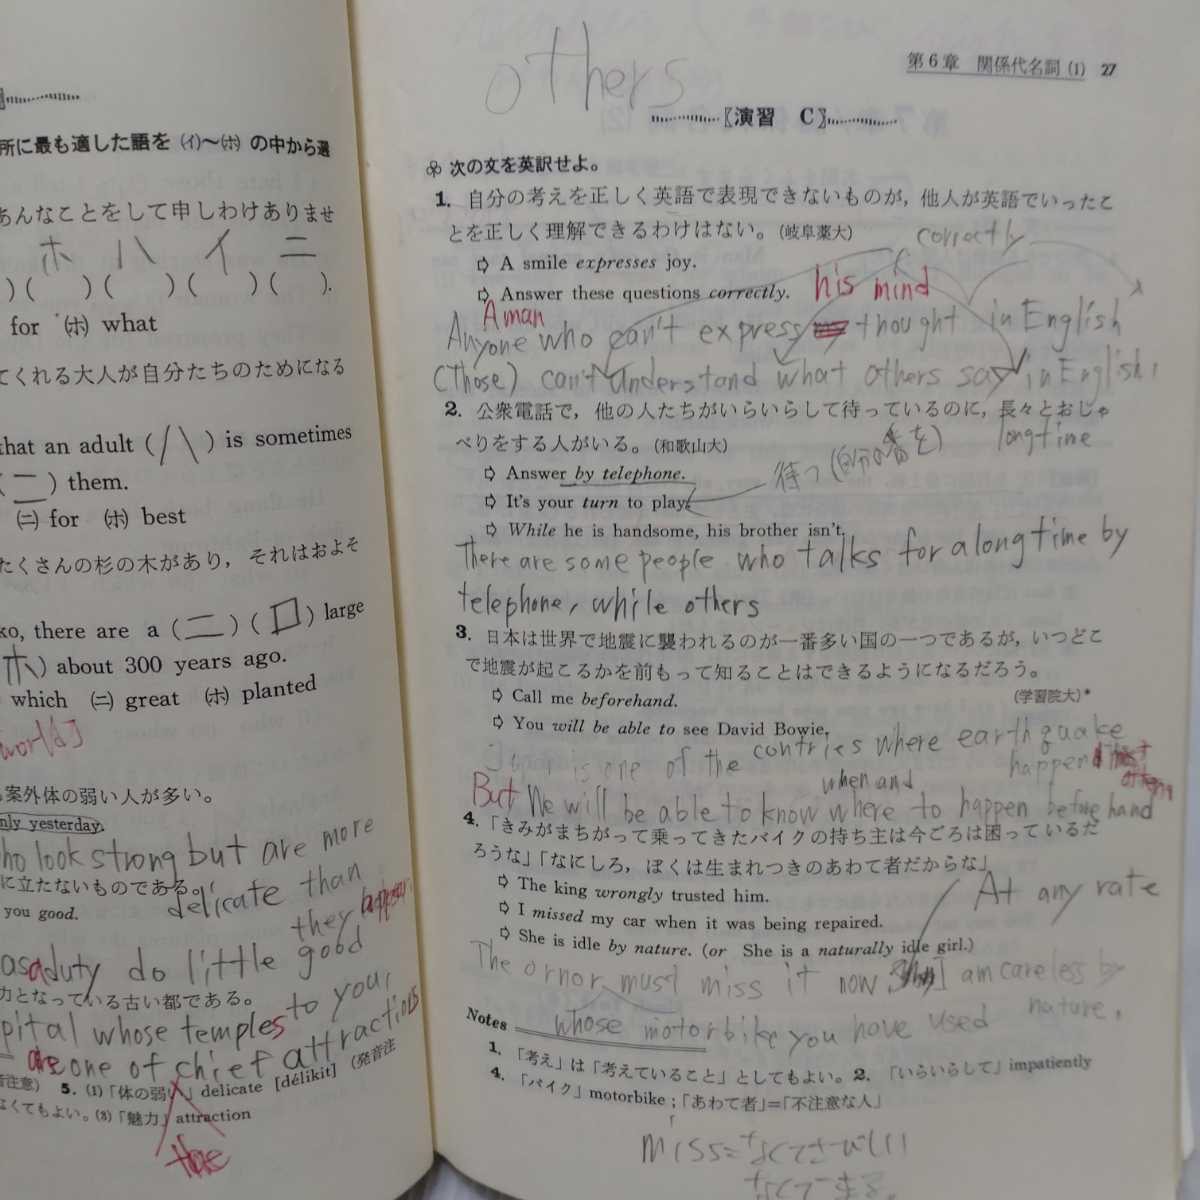 所に最も適した語を (イ)～(ホ) の中から選
あんなことをして申しわけありませ
ホ ハ イ ニ
)( )( )( )( ).
for (ホ) what
てくれる大人が自分たちのためになる
that an adult ( ハ ) is sometimes
( ニ ) them.
(ニ) for (ホ) best
たくさんの杉の木があり，それはおよそ
ko, there are a ( ニ ) ( ロ ) large
ホ ) about 300 years ago.
which (ニ) great (ホ) planted
案外体の弱い人が多い。
only yesterday.
who look strong but are more
に立たないものである。
delicate than
you good.
they appear
as a duty do little good
力となっている古い都である。
to you.
pital whose temples
are one of chief attractions
音注意) 5. (1)「体の弱い」delicate [délikit] (発音注
なくてもよい。(3)「魅力」attraction
the
第6章 関係代名詞 (1) 27
others
〖演習 C〗
次の文を英訳せよ。
1. 自分の考えを正しく英語で表現できないものが，他人が英語でいったこ
とを正しく理解できるわけはない。(岐阜薬大)
correctly
⇨ A smile expresses joy.
⇨ Answer these questions correctly.
his mind
A man
Anyone who can't express my thought in English
(Those) can't understand what others say in English,
2. 公衆電話で，他の人たちがいらいらして待っているのに，長々とおしゃ
べりをする人がいる。(和歌山大)
longtime
⇨ Answer by telephone.
待つ (自分の番を)
⇨ It's your turn to play.
⇨ While he is handsome, his brother isn't.
There are some people who talks for a long time by
telephone, while others
3. 日本は世界で地震に襲われるのが一番多い国の一つであるが，いつどこ
で地震が起こるかを前もって知ることはできるようになるだろう。
⇨ Call me beforehand.
(学習院大)*
⇨ You will be able to see David Bowie.
Japan is one of the contries where earthquake
happen most
often
when and
But We will be able to know where to happen beforehand
4. 「きみがまちがって乗ってきたバイクの持ち主は今ごろは困っているだ
ろうな」「なにしろ，ぼくは生まれつきのあわて者だからな」
⇨ The king wrongly trusted him.
At any rate
⇨ I missed my car when it was being repaired.
⇨ She is idle by nature. (or She is a naturally idle girl.)
The ornor must miss it now I am careless by
nature.
whose motorbike you have used
Notes
1. 「考え」は「考えていること」としてもよい。2. 「いらいらして」impatiently
4. 「バイク」motorbike ;「あわて者」=「不注意な人」
miss=なくてさびしい
なくてこまる。